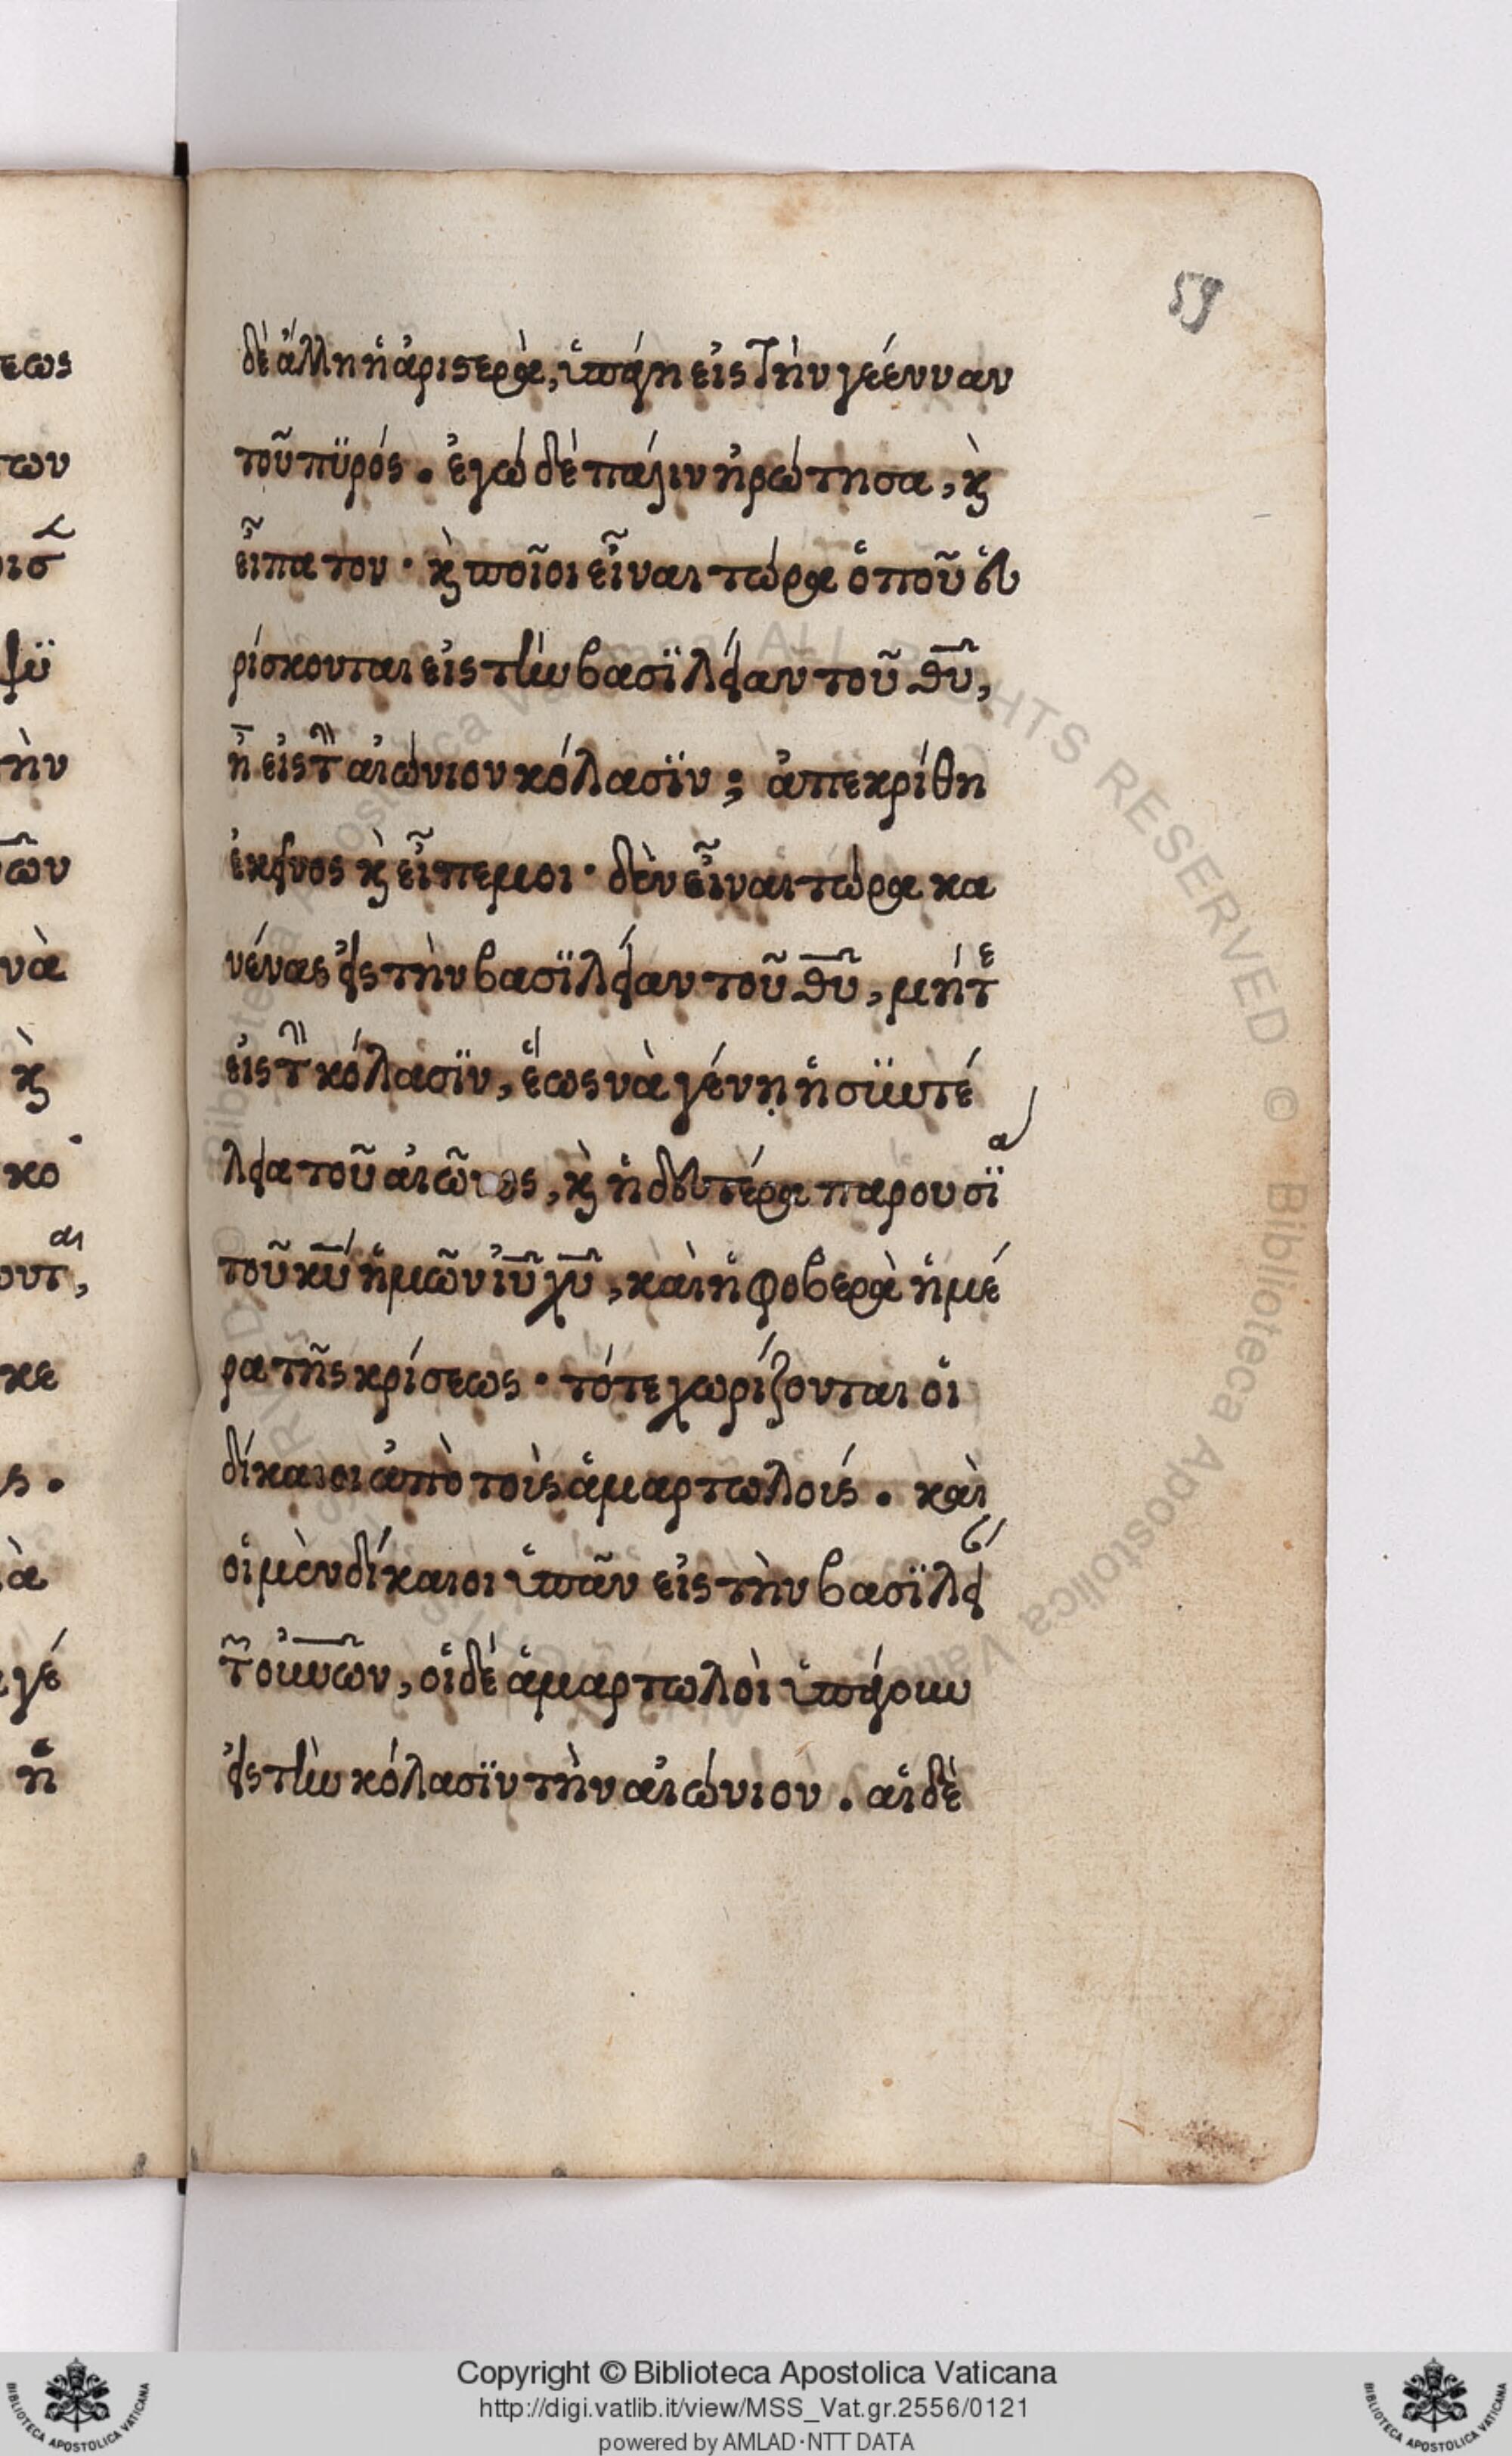 59
δὲ ἄλλη ἡ ἀριστερὰ, ὑπάγη εἰς τὴν γεένναν
τοῦ πϋρός. ἐγώ δὲ πάλιν ἠρώτησα, κ̀
εἶπα τον· κ̀ ποῖοι εἶναι τώρα ὁποῦ εὑ
ρίσκονται εἰς τὴν βασϊλείαν τοῦ θῦ,
ἢ εἰς τ̅ αἰώνιον κόλασϊν; ἀπεκρίθη
ἐκεῖνος κ̀ εἶπε μοι· δὲν εἶναι τώρα κα
νένας εἰς τὴν βασϊλείαν τοῦ θῦ, μήτε
εἰς τ̅ κόλασϊν, ἕως νὰ γένῃ ἡ σϋντέ
λεια τοῦ αἰῶνος, κ̀ ἡ δευτέρα παρουσϊα
τοῦ κῦ ἡμῶν ἰῦ χῦ, καὶ ἡ φοβερὰ ἡμέ
ρα τῆς κρίσεως· τότε χωρίζονται οἱ
δίκαιοι ἀπὸ τοὶς ἁμαρτωλοίς. καὶ
οἱ μὲν δίκαιοι ὑπᾶν εἰς τὴν βασϊλεί
τ̅ οὐνῶν, οἱ δὲ ἁμαρτωλοὶ ὑπάγουν
εἰς τὴν κόλασϊν τὴν αἰώνιον. αἱ δὲ
εως
των
ϊὸν
νὰ
κ̀
κο
ουται,
κε
ς.
γέ
ἢ
Copyright © Biblioteca Apostolica Vaticana
http://digi.vatlib.it/view/MSS_Vat.gr.2556/0121
powered by AMLAD·NTT DATA